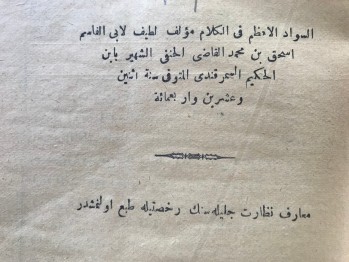 السواد الاعظم فى الكلام مؤلف لطيف لابى القاسم
اسحق بن محمد القاضى الحنفى الشهير بابن
الحكيم السمرقندى المتوفى سنة اثنين
وعشرين واربعمائة
معارف نظارت جليله سنك رخصتيله طبع اولنمشدر